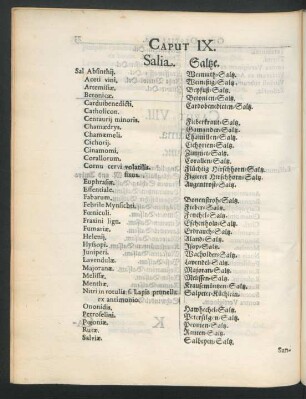 CAPUT IX.
Salia. Saltze.
Sal Absinthij. Wermuth-Saltz.
Aceti vini, Weinessig-Saltz.
Artemisiæ, Beyfuß-Saltz.
Betonicæ, Betonien-Saltz.
Carduibenedicti, Cardobenedicten-Saltz.
Catholicon.
Centaurij minoris. Fieberkraut-Saltz.
Chamædrys. Gamander-Saltz.
Chamæmeli. Chamillen-Saltz.
Cichorij. Cichorien-Saltz.
Cinamomi. Zimmet-Saltz.
Corallorum. Corallen-Saltz.
Cornu cervi volatilis. Flüchtig Hirschhorn-Saltz.
fixum. Figieret Hirschhorn-Saltz.
Euphrasiæ. Augentrost-Saltz.
Essentiale.
Fabarum. Bonenstrohe-Saltz.
Febrile Mynsicht. Fieber-Saltz.
Fœniculi. Fenchel-Saltz.
Fraxini lign. Eschenholtz-Saltz.
Fumariæ. Erdrauch-Saltz.
Helenij. Aland-Saltz.
Hyssopi. Isop-Saltz.
Juniperi. Wacholder-Saltz.
Lavendulæ. Lavendel-Saltz.
Majoranæ. Majoran-Saltz.
Melissæ. Melissen-Saltz.
Menthæ. Krausemüntzen-Saltz.
Nitri in rotulis s. Lapis prunellæ Salpeter-Küchlein.
ex antimonio.
Ononidis. Hawhechel-Saltz.
Petroselini. Petersilgen-Saltz.
Pæoniæ. Peonien-Saltz.
Rutæ. Rauten-Saltz.
Salviæ. Salbeyen-Saltz.